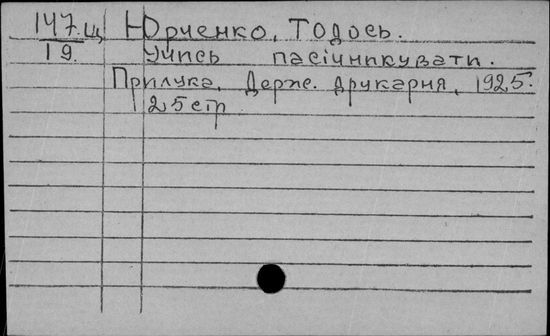 147.Щ Юрченко, Тодось.
19. Учись пасічникувати.
Прилука, Держ. друкарня, 1925.
25 стр